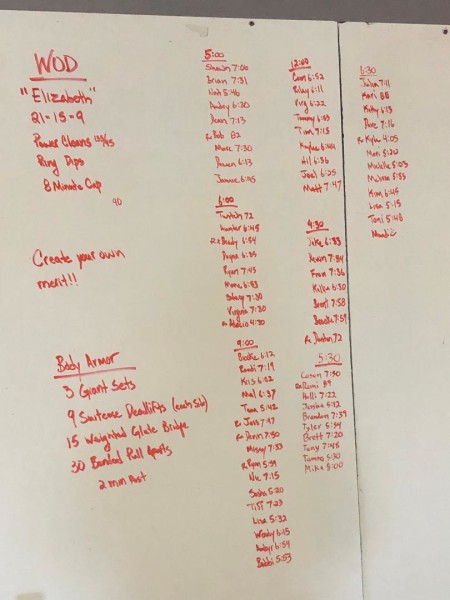 WOD
"Elizabeth"
21-15-9
Power Cleans 135/95
Ring Dips
8 Minute Cap
90
Create your own
merit!!!
Body Armor
3 Giant Sets
9 Suitcase Deadlifts (each side)
15 Weighted Glute Bridge
30 Banded Pull Aparts
2 min Rest
5:00
Shawn 7:06
Brian 7:31
Nat 5:46
Audrey 6:30
Dean 7:13
Rx Bob 82
Marc 7:30
6:13
Joanne 6:45
6:00
72
Hunter 6:45
Rx Brady 6:54
Payne 6:35
Ryan 7:43
Mona 6:53
Stacy 7:30
Virginia 7:30
Rx 4:30
9:00
Brooke 6:12
7:19
Kris 6:02
Mal 6:37
Tara 5:42
Rx Jess 7:47
Rx 7:50
Missy 7:33
Rx Ryan 5:59
Nic 7:15
Sasha 5:20
Tiff 7:23
Lisa 5:32
Wendy 6:15
6:54
Bobbi 5:53
12:00
Cam 6:52
Riley 6:11
Virg 6:22
Tammy 6:53
Tim 7:13
Kaylee
Lil 6:36
Joel 6:25
Matt 7:47
4:30
Jake 6:33
7:34
Fran 7:36
6:30
Brent 7:58
7:59
Rx 72
5:30
Cason 7:50
Rx Rami 89
Halli 7:22
Jessha 5:12
Brandon 7:39
Tyler 5:54
Brett 7:20
Tony 7:45
Tammy 5:30
Mike 5:00
6:30
Julia 7:11
Mari 88
Kathy 6:13
Dave 7:16
Rx Kylee 4:05
Mari 5:20
Michelle 5:03
5:53
Kim 6:45
Lisa 5:15
Toni 5:48